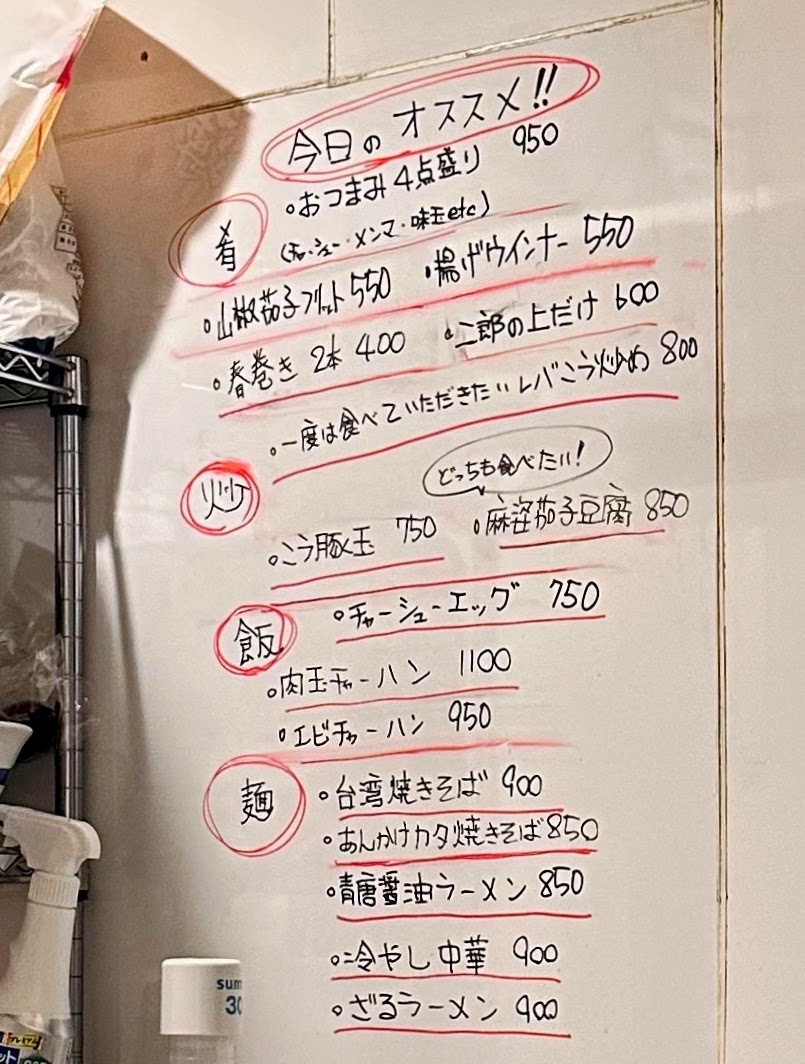 今日のオススメ!!
肴
・おつまみ4点盛り 950
(チャーシュー・メンマ・味玉etc)
・山椒茄子フリット 550 ・揚げウインナー 550
・春巻き 2本 400 ・二郎の上だけ 600
・一度は食べていただきたいレバニラ炒め 800
炒
どっちも食べたい!
・ニラ豚玉 750 ・麻婆茄子豆腐 850
飯
・チャーシューエッグ 750
・肉玉チャーハン 1100
・エビチャーハン 950
麺
・台湾焼きそば 900
・あんかけカタ焼きそば 850
・青唐醤油ラーメン 850
・冷やし中華 900
・ざるラーメン 900
sum
30